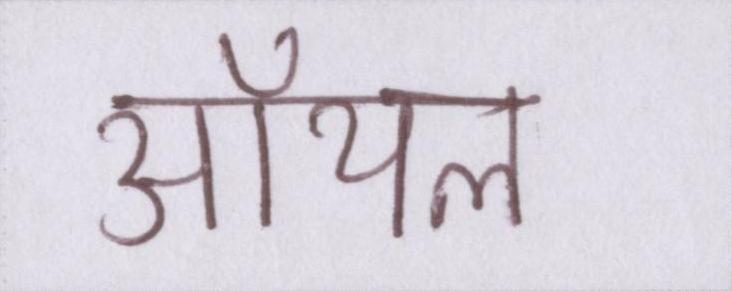 ऑयल